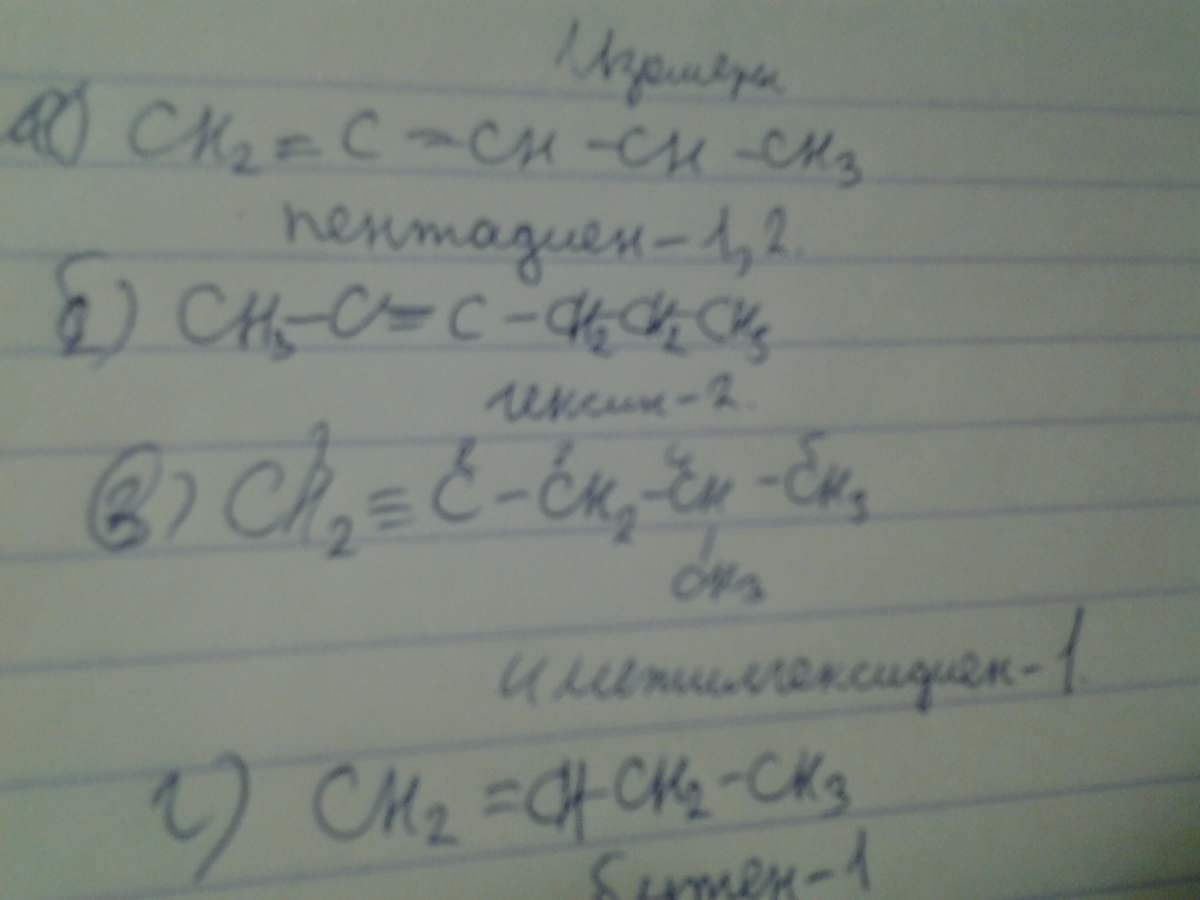 Изомеры
а) CH2 = C = CH - CH - CH3
пентадиен-1,2.
б) CH3-C≡C-CH2-CH2-CH3
гексин-2.
в) CH2 ≡ C - CH2 - CH - CH3
1 2 3 4 5
CH3
4 метилгексидиен-1.
г) CH2 = CH-CH2-CH3
бутен-1